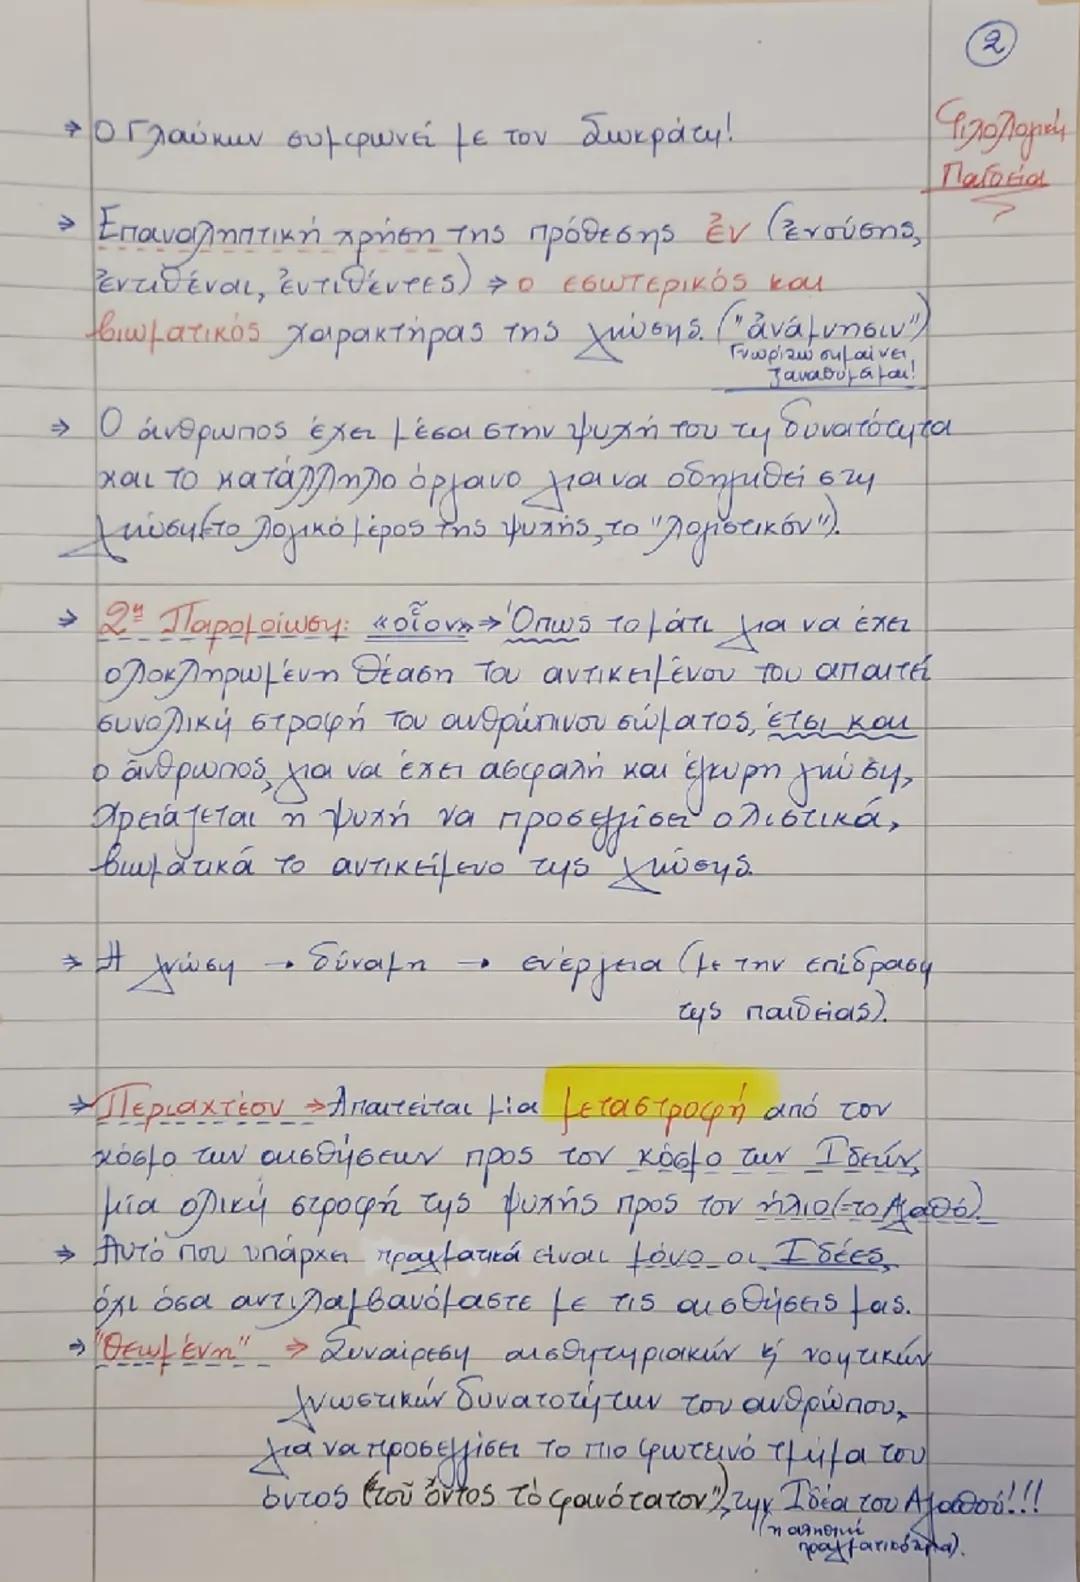 2
Φιλολογική
Παιδεία
⇒ Ο Γλαύκων συμφωνεί με τον Σωκράτη!
⇒ Επαναληπτική χρήση της πρόθεσης ἐν (ἐνούσης,
ἐντιθέναι, ἐντιθέντες) ⇒ ο εσωτερικός και
βιωματικός χαρακτήρας της γνώσης. ("ἀνάμνησιν")
Γνωρίζω σημαίνει
ξαναθυμάμαι!
⇒ Ο άνθρωπος έχει μέσα στην ψυχή του τη δυνατότητα
και το κατάλληλο όργανο για να οδηγηθεί στη
γνώση (το λογικό μέρος της ψυχής, το "λογιστικόν").
⇒ 2η Παρομοίωση: «οἷον» ⇒ Όπως το μάτι για να έχει
ολοκληρωμένη θέαση του αντικειμένου του απαιτεί
συνολική στροφή του ανθρώπινου σώματος, έτσι και
ο άνθρωπος, για να έχει ασφαλή και έγκυρη γνώση,
χρειάζεται η ψυχή να προσεγγίσει ολιστικά,
βιωματικά το αντικείμενο της γνώσης.
⇒ Η γνώση → δύναμη → ενέργεια (με την επίδραση
της παιδείας).
⇒ Περιακτέον ⇒ Απαιτείται μία μεταστροφή από τον
κόσμο των αισθήσεων προς τον κόσμο των Ιδεών,
μία ολική στροφή της ψυχής προς τον ήλιο (=το Αγαθό).
⇒ Αυτό που υπάρχει πραγματικά είναι μόνο οι Ιδέες,
όχι όσα αντιλαμβανόμαστε με τις αισθήσεις μας.
⇒ "Θεωμένη" ⇒ Συναίρεση αισθητηριακών κ' νοητικών
γνωστικών δυνατοτήτων του ανθρώπου,
για να προσεγγίσει το πιο φωτεινό τμήμα του
όντος ("τοῦ ὄντος τὸ φανότατον"), την Ιδέα του Αγαθού!!!
(η αληθινή
πραγματικότητα).